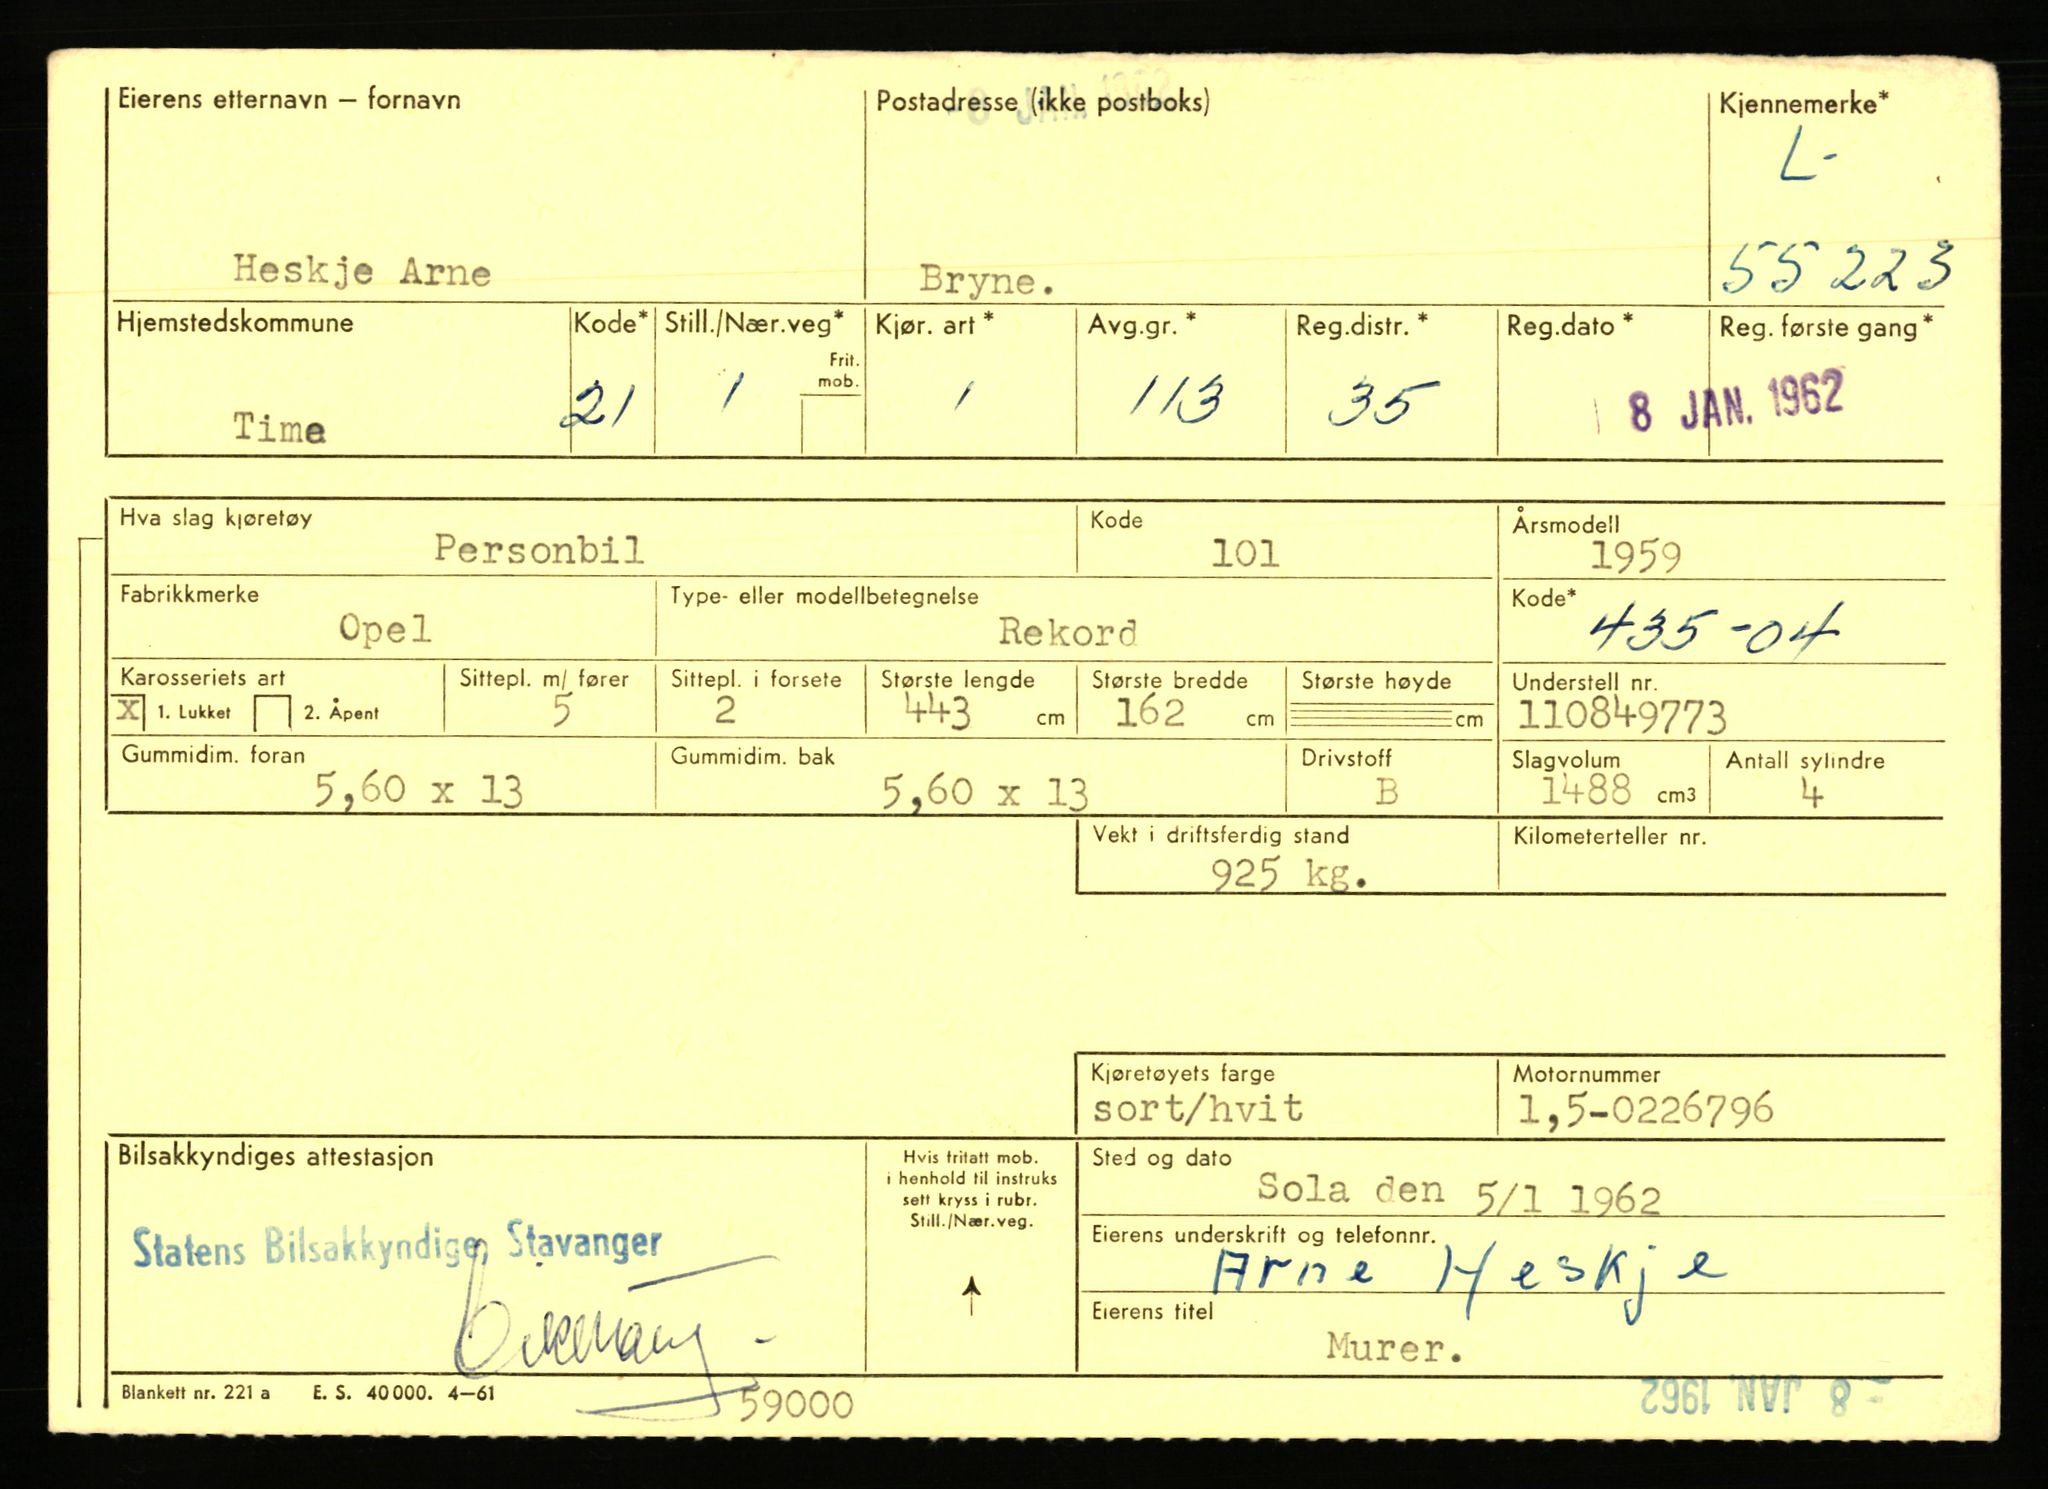 Eierens etternavn – fornavn
Postadresse (ikke postboks)
Kjennemerke*
L-
Heskje Arne
Bryne.
55223
Hjemstedskommune
Kode*
Still./Nær.veg*
Kjør. art *
Avg.gr. *
Reg.distr. *
Reg.dato *
Reg. første gang*
Frit.
mob.
Time
21
1
1
113
35
8 JAN. 1962
Hva slag kjøretøy
Kode
Årsmodell
Personbil
101
1959
Fabrikkmerke
Type- eller modellbetegnelse
Kode*
Opel
Rekord
435-04
Karosseriets art
Sittepl. m/ fører
Sittepl. i forsete
Største lengde
Største bredde
Største høyde
Understell nr.
X 1. Lukket
2. Åpent
5
2
443 cm
162 cm
cm
110849773
Gummidim. foran
Gummidim. bak
Drivstoff
Slagvolum
Antall sylindre
5,60 x 13
5,60 x 13
B
1488 cm3
4
Vekt i driftsferdig stand
Kilometerteller nr.
925 kg.
Kjøretøyets farge
Motornummer
sort/hvit
1,5-0226796
Bilsakkyndiges attestasjon
Hvis fritatt mob.
i henhold til instruks
sett kryss i rubr.
Still./Nær.veg.
Sted og dato
Sola den 5/1 1962
Statens Bilsakkyndige, Stavanger
Eierens underskrift og telefonnr.
Arne Heskje
Eierens titel
Murer.
Blankett nr. 221 a E. S. 40000. 4–61
59000
- 8 JAN. 1962